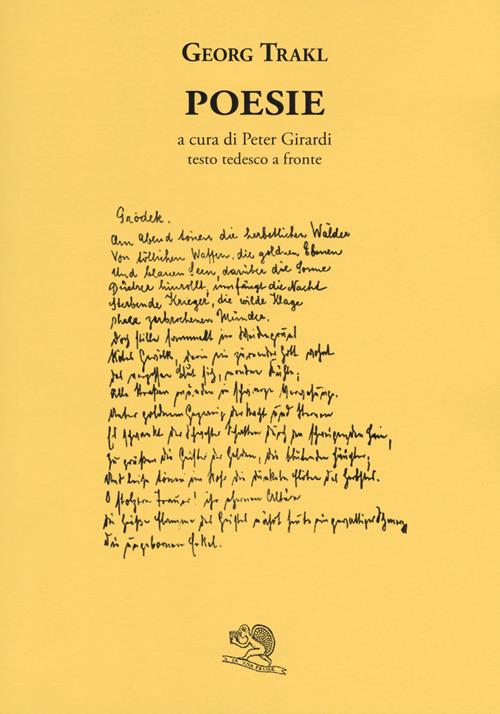 GEORG TRAKL
POESIE
a cura di Peter Girardi
testo tedesco a fronte
Grodek.
Am Abend tönen die herbstlichen Wälder
Von tötlichen Waffen, die goldnen Ebenen
Und blauen Seen, darüber die Sonne
Düstrer hinrollt; umfängt die Nacht
Sterbende Krieger, die wilde Klage
Ihrer zerbrochenen Münder.
Doch stille sammelt im Weidengrund
Rotes Gewölk, darin ein zürnender Gott wohnt
Das vergossne Blut sich, mondne Kühle;
Alle Straßen münden in schwarze Verwesung.
Unter goldnem Gezweig der Nacht und Sternen
Es schwankt der Schwester Schatten durch den schweigenden Hain,
Zu grüßen die Geister der Helden, die blutenden Häupter;
Und leise tönen im Rohr die dunklen Flöten des Herbstes.
O stolzere Trauer! ihr ehernen Altäre
Die heiße Flamme des Geistes nährt heute ein gewaltiger Schmerz
Die ungebornen Enkel.
LA VITA FELICE